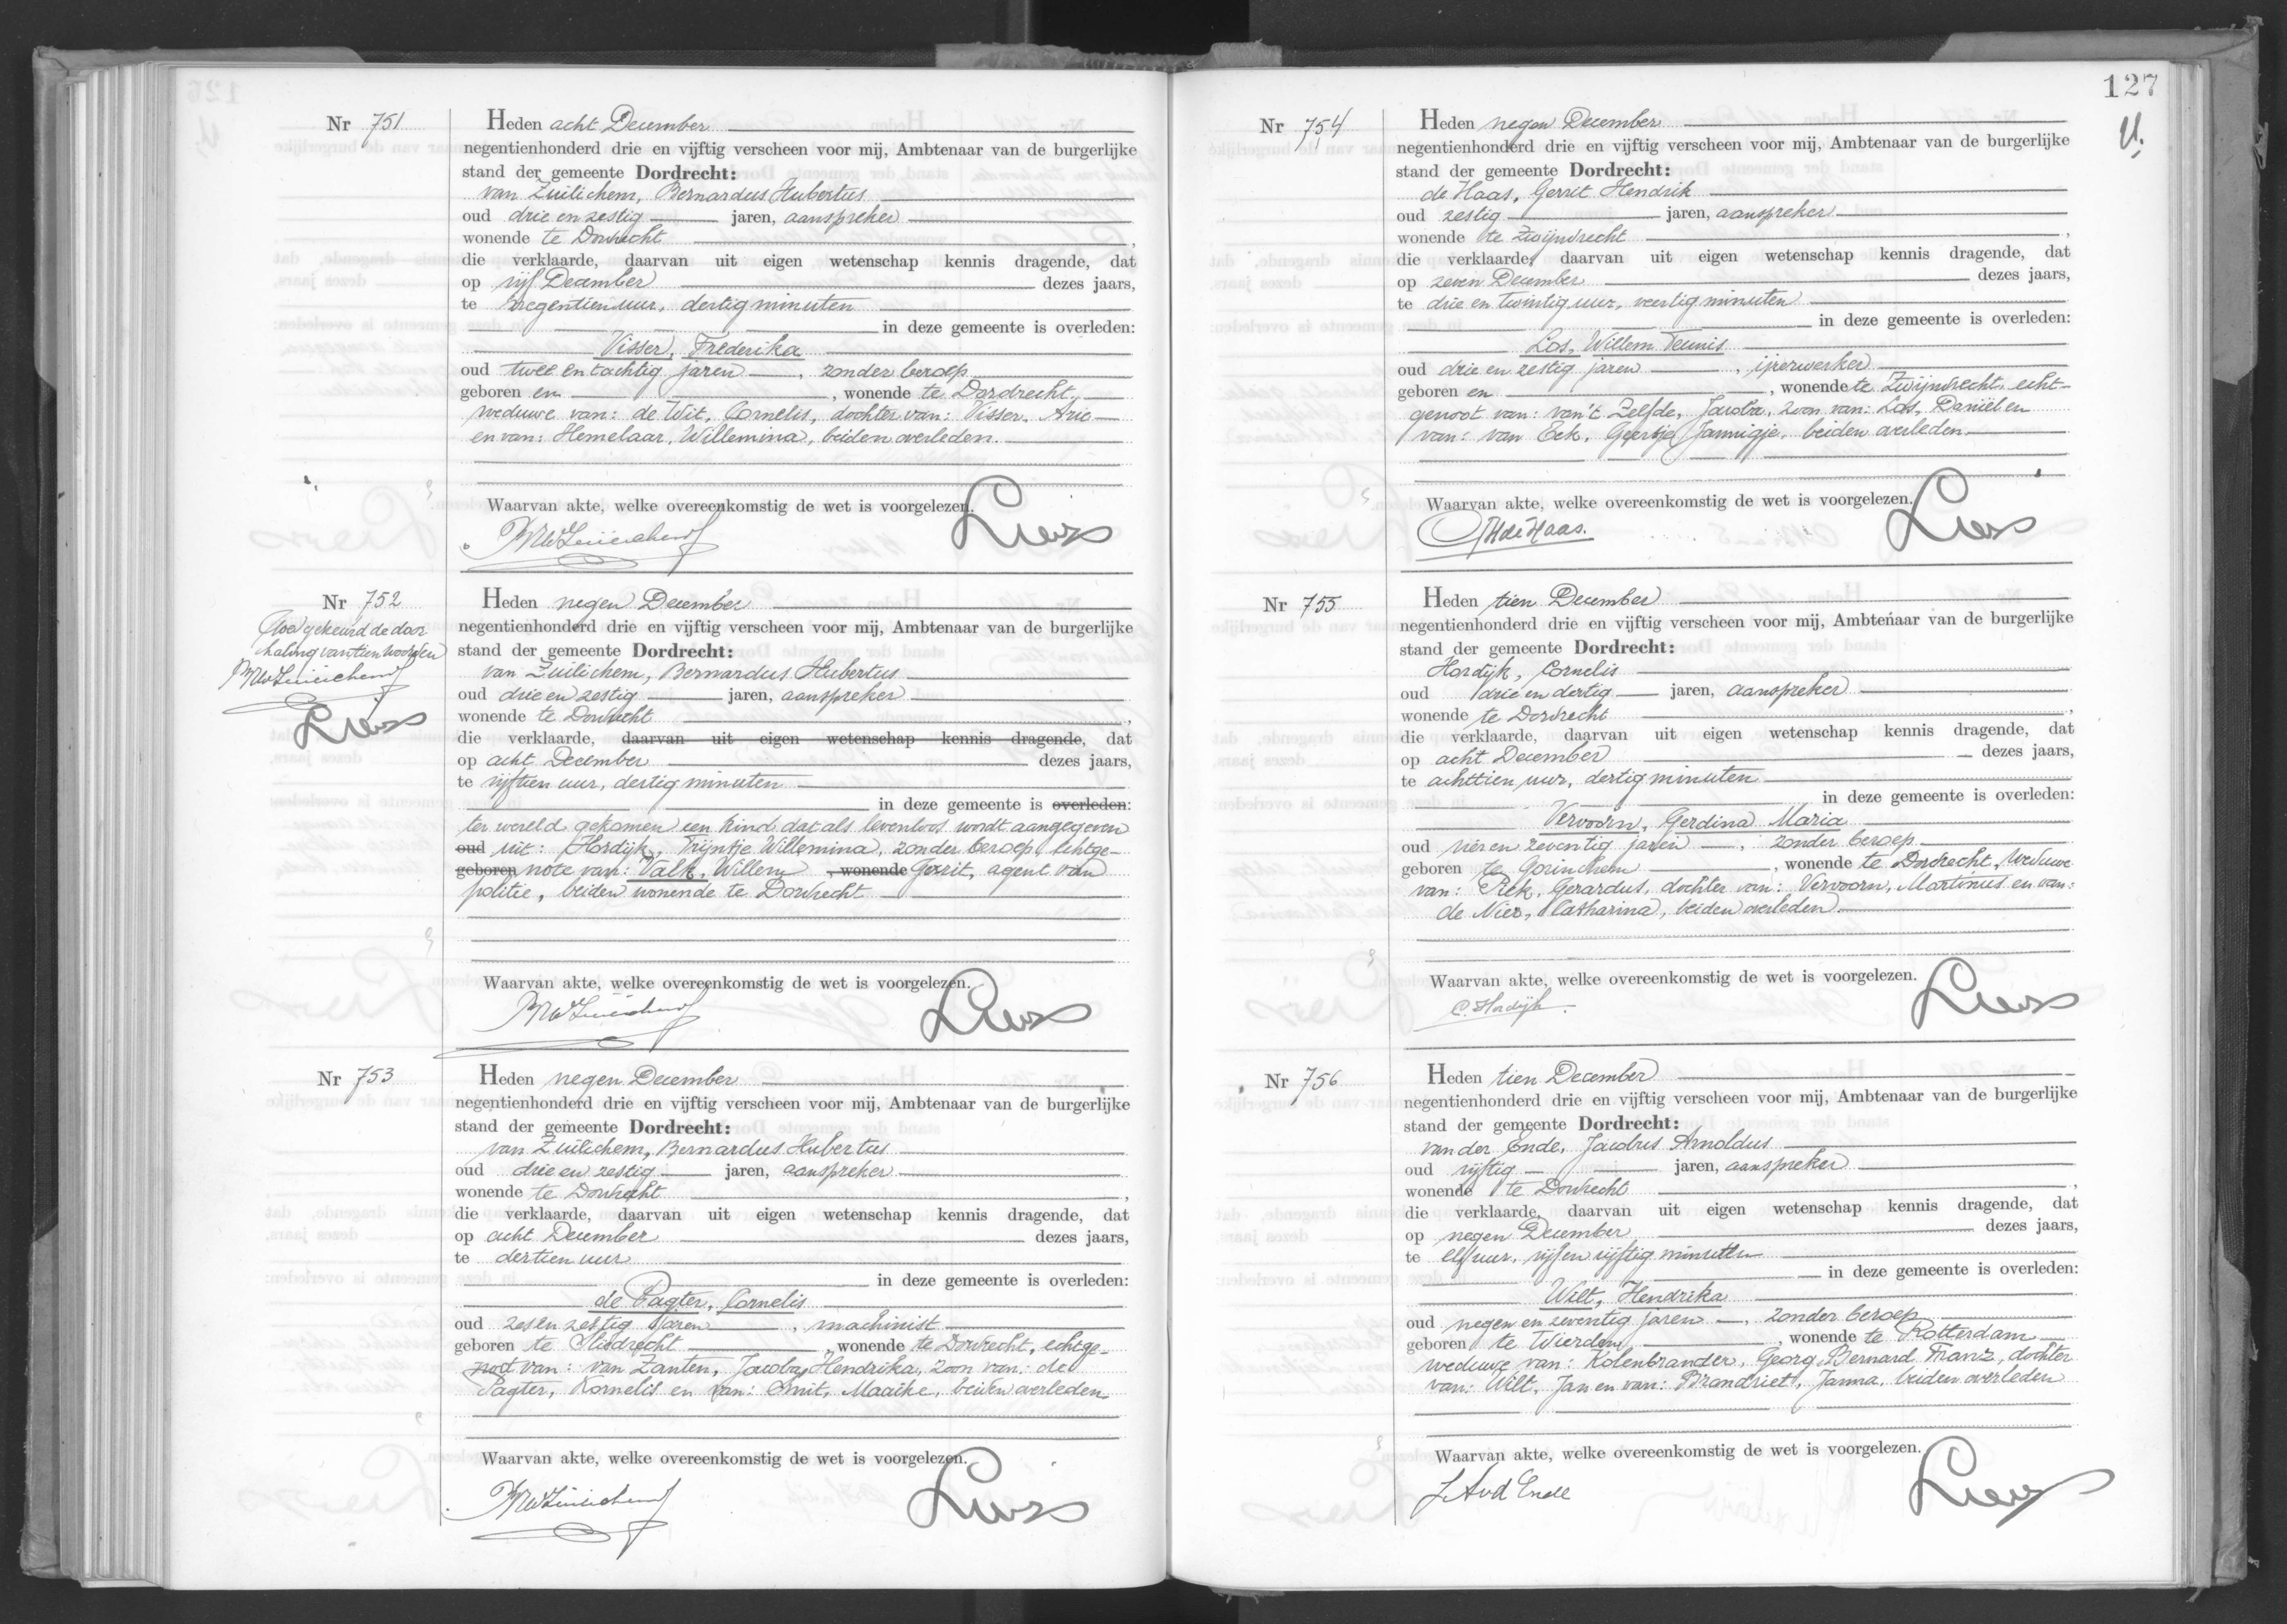 Nr 751
Heden acht December
negentienhonderd drie en vijftig verscheen voor mij, Ambtenaar van de burgerlijke
stand der gemeente Dordrecht:
van Zuilichem, Bernardus Hubertus
oud drie en zestig jaren, aanspreker
wonende te Dordrecht,
die verklaarde, daarvan uit eigen wetenschap kennis dragende, dat
op vijf December dezes jaars,
te negentien uur, dertig minuten
in deze gemeente is overleden:
Visser, Frederika
oud twee en tachtig jaren, zonder beroep
geboren en, wonende te Dordrecht,
weduwe van: de Wit, Cornelis, dochter van: Visser, Arie
en van: Hemelaar, Willemina, beiden overleden.
Waarvan akte, welke overeenkomstig de wet is voorgelezen.
Nr 752
Goedgekeurd de door
haling van tien woorden
Heden negen December
negentienhonderd drie en vijftig verscheen voor mij, Ambtenaar van de burgerlijke
stand der gemeente Dordrecht:
van Zuilichem, Bernardus Hubertus
oud drie en zestig jaren, aanspreker
wonende te Dordrecht,
die verklaarde, daarvan uit eigen wetenschap kennis dragende, dat
op acht December dezes jaars,
te vijftien uur, dertig minuten
in deze gemeente is overleden:
ter wereld gekomen een kind dat als levenloos wordt aangegeven
oud uit: Hordijk, Trijntje Willemina, zonder beroep, echtge-
geboren note van: Valk, Willem, wonende Gerrit, agent van
politie, beiden wonende te Dordrecht
Waarvan akte, welke overeenkomstig de wet is voorgelezen.
Nr 753
Heden negen December
negentienhonderd drie en vijftig verscheen voor mij, Ambtenaar van de burgerlijke
stand der gemeente Dordrecht:
van Zuilichem, Bernardus Hubertus
oud drie en zestig jaren, aanspreker
wonende te Dordrecht,
die verklaarde, daarvan uit eigen wetenschap kennis dragende, dat
op acht December dezes jaars,
te dertien uur
in deze gemeente is overleden:
de Pagter, Cornelis
oud zes en zestig jaren, machinist
geboren te Sliedrecht, wonende te Dordrecht, echtge-
noot van: van Zanten, Jacoba Hendrika, zoon van: de
Pagter, Kornelis en van: Smit, Maaike, beiden overleden
Waarvan akte, welke overeenkomstig de wet is voorgelezen.
127
Nr 754
Heden negen December
negentienhonderd drie en vijftig verscheen voor mij, Ambtenaar van de burgerlijke
stand der gemeente Dordrecht:
de Haas, Gerrit Hendrik
oud zestig jaren, aanspreker
wonende te Zwijndrecht,
die verklaarde, daarvan uit eigen wetenschap kennis dragende, dat
op zeven December dezes jaars,
te drie en twintig uur, veertig minuten
in deze gemeente is overleden:
Los, Willem Teunis
oud drie en zestig jaren, ijzerwerker
geboren en, wonende te Zwijndrecht, echt-
genoot van: van't Zelfde, Jacoba, zoon van: Los, Daniël en
van: van Eck, Geertje Jannigje, beiden overleden
Waarvan akte, welke overeenkomstig de wet is voorgelezen.
GH de Haas.
Nr 755
Heden tien December
negentienhonderd drie en vijftig verscheen voor mij, Ambtenaar van de burgerlijke
stand der gemeente Dordrecht:
Hordijk, Cornelis
oud drie en dertig jaren, aanspreker
wonende te Dordrecht,
die verklaarde, daarvan uit eigen wetenschap kennis dragende, dat
op acht December dezes jaars,
te achttien uur, dertig minuten
in deze gemeente is overleden:
Vervoorn, Gerdina Maria
oud vier en zeventig jaren, zonder beroep
geboren te Gorinchem, wonende te Dordrecht, weduwe
van: Piek, Gerardus, dochter van: Vervoorn, Martinus en van:
de Nier, Catharina, beiden overleden.
Waarvan akte, welke overeenkomstig de wet is voorgelezen.
C. Hordijk.
Nr 756
Heden tien December
negentienhonderd drie en vijftig verscheen voor mij, Ambtenaar van de burgerlijke
stand der gemeente Dordrecht:
van der Ende, Jacobus Arnoldus
oud vijftig jaren, aanspreker
wonende te Dordrecht,
die verklaarde, daarvan uit eigen wetenschap kennis dragende, dat
op negen December dezes jaars,
te elf uur, vijf en vijftig minuten
in deze gemeente is overleden:
Wilt, Hendrika
oud negen en zeventig jaren, zonder beroep
geboren te Wierden, wonende te Rotterdam
weduwe van: Kolenbrander, Georg Bernard Franz, dochter
van: Wilt, Jan en van: Brandriet, Janna, beiden overleden
Waarvan akte, welke overeenkomstig de wet is voorgelezen.
J A v d Ende